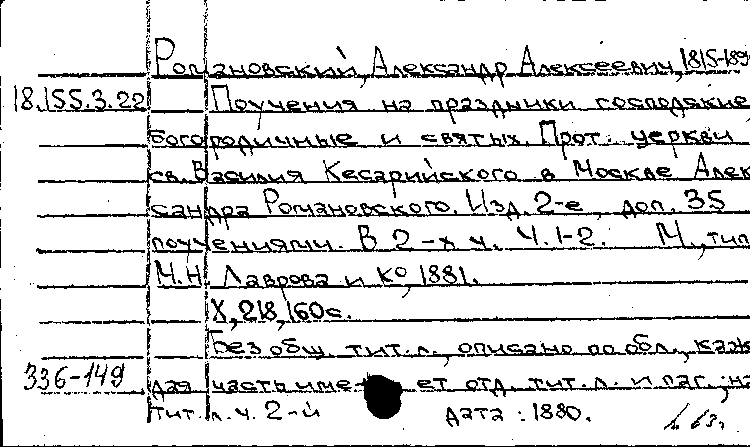 Романовский, Александр Алексеевич, 1815-189
18.155.3.22 Поучения на праздники господские
богородичные и святых. Прот. церкви
св. Василия Кесарийского в Москве Алек
сандра Романовского. Изд. 2-е, доп. 35
поучениями. В 2-х ч. Ч. 1-2. М., тип
М.Н. Лаврова и К°, 1881.
X, 218, 160 с.
Без общ. тит. л., описано по обл., каж
336-149 дая часть имеет отд. тит. л. и паг.; на
тит. л. ч. 2-й дата: 1880.